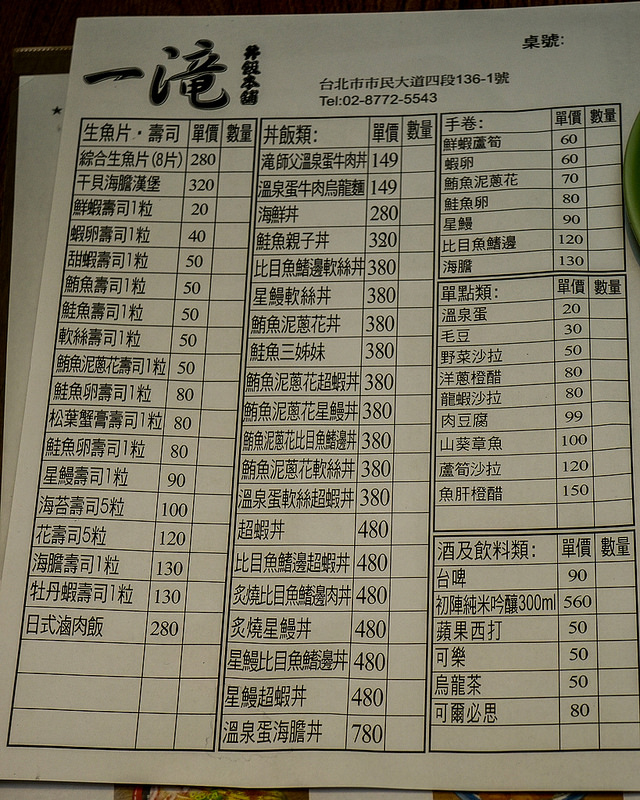 一滝
丼飯本舖
桌號:
台北市市民大道四段136-1號
Tel:02-8772-5543
生魚片・壽司 單價 數量
綜合生魚片(8片) 280
干貝海膽漢堡 320
鮮蝦壽司1粒 20
蝦卵壽司1粒 40
甜蝦壽司1粒 50
鮪魚壽司1粒 50
鮭魚壽司1粒 50
軟絲壽司1粒 50
鮪魚泥蔥花壽司1粒 50
鮭魚卵壽司1粒 80
松葉蟹膏壽司1粒 80
鮭魚卵壽司1粒 80
星鰻壽司1粒 90
海苔壽司5粒 100
花壽司5粒 120
海膽壽司1粒 130
牡丹蝦壽司1粒 130
日式滷肉飯 280
丼飯類: 單價 數量
滝師父溫泉蛋牛肉丼 149
溫泉蛋牛肉烏龍麵 149
海鮮丼 280
鮭魚親子丼 320
比目魚鰭邊軟絲丼 380
星鰻軟絲丼 380
鮪魚泥蔥花丼 380
鮭魚三姊妹 380
鮪魚泥蔥花超蝦丼 380
鮪魚泥蔥花星鰻丼 380
鮪魚泥蔥花比目魚鰭邊丼 380
鮪魚泥蔥花軟絲丼 380
溫泉蛋軟絲超蝦丼 380
超蝦丼 480
比目魚鰭邊超蝦丼 480
炙燒比目魚鰭邊肉丼 480
炙燒星鰻丼 480
星鰻比目魚鰭邊丼 480
星鰻超蝦丼 480
溫泉蛋海膽丼 780
手卷: 單價 數量
鮮蝦蘆筍 60
蝦卵 60
鮪魚泥蔥花 70
鮭魚卵 80
星鰻 90
比目魚鰭邊 120
海膽 130
單點類: 單價 數量
溫泉蛋 20
毛豆 30
野菜沙拉 50
洋蔥橙醋 80
龍蝦沙拉 80
肉豆腐 99
山葵章魚 100
蘆筍沙拉 120
魚肝橙醋 150
酒及飲料類: 單價 數量
台啤 90
初陣純米吟釀300ml 560
蘋果西打 50
可樂 50
烏龍茶 50
可爾必思 80